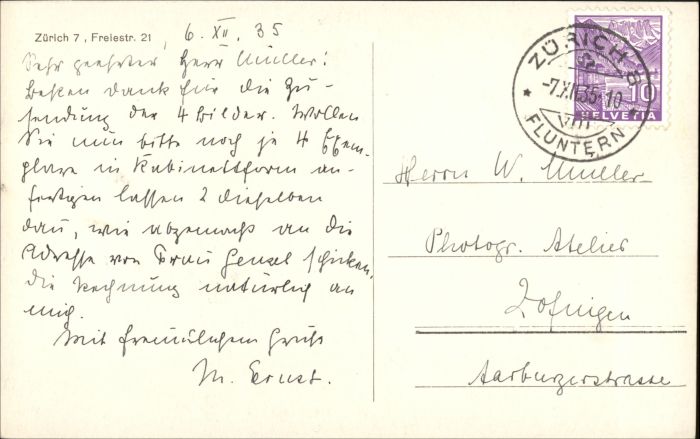 Zürich 7, Freiestr. 21
6. XII. 35
Sehr geehrter Herr Müller!
Besten Dank für die Zu-
sendung der 4 Bilder. Wollen
Sie nun bitte noch je 4 Exem-
plare in Kabinettform an-
fertigen lassen & dieselben
dan, wie abgemacht an die
Adresse von Frau Gensel schicken,
die Rechnung natürlich an
mich.
Mit freundlichem Gruss
M. Ernst.
ZÜRICH 8
-7.XII.35-10
VIII
FLUNTERN
10
HELVETIA
Herrn W. Müller
Photogr. Atelier
Zofingen
Aarburgerstrasse